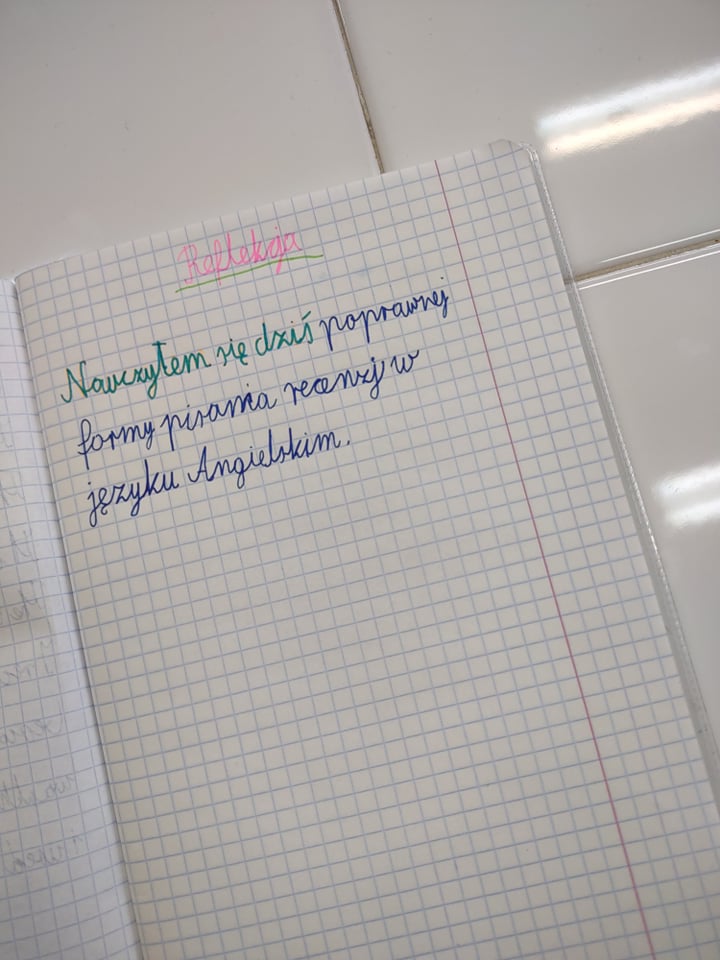 Refleksja
Nauczyłem się dziś poprawnej
formy pisania recenzj w
języku Angielskim.